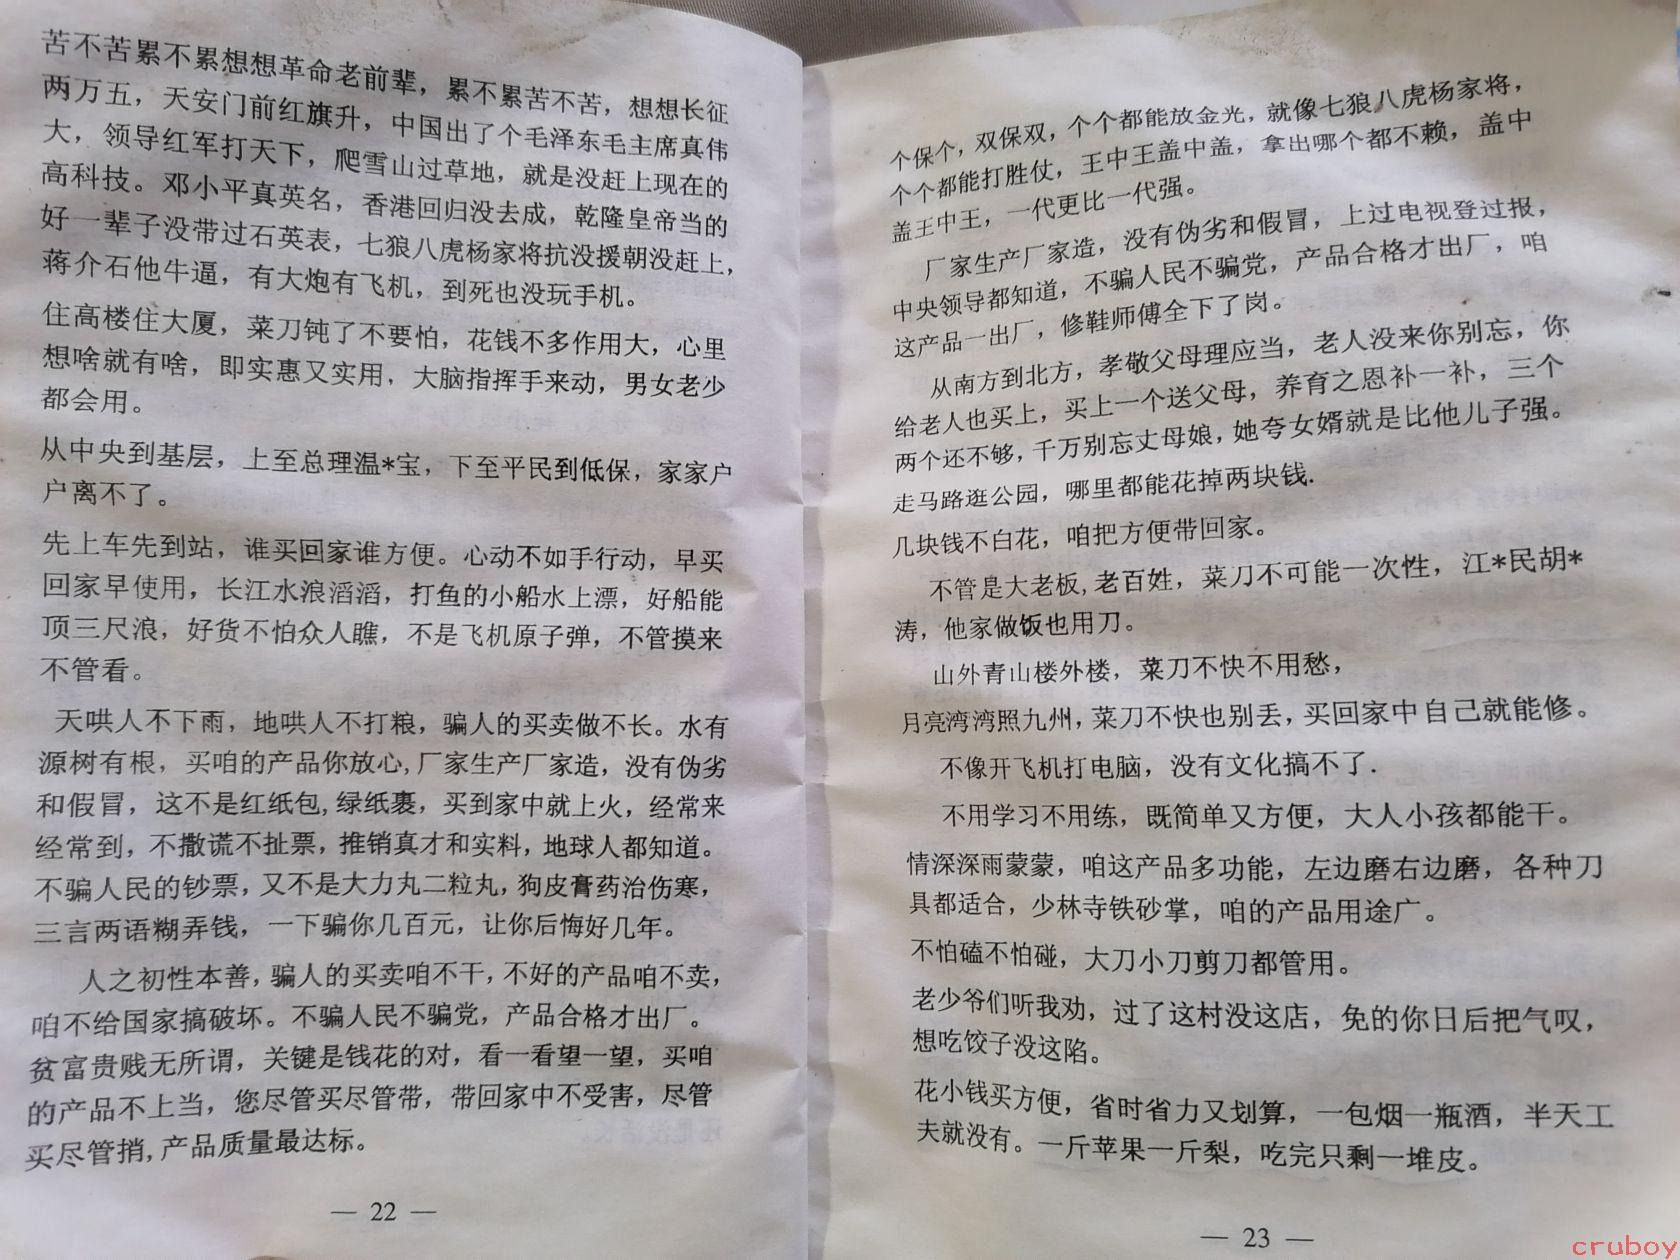 苦不苦累不累想想革命老前辈，累不累苦不苦，想想长征
两万五，天安门前红旗升，中国出了个毛泽东毛主席真伟
大，领导红军打天下，爬雪山过草地，就是没赶上现在的
高科技。邓小平真英名，香港回归没去成，乾隆皇帝当的
好一辈子没带过石英表，七狼八虎杨家将抗没援朝没赶上，
蒋介石他牛逼，有大炮有飞机，到死也没玩手机。
住高楼住大厦，菜刀钝了不要怕，花钱不多作用大，心里
想啥就有啥，即实惠又实用，大脑指挥手来动，男女老少
都会用。
从中央到基层，上至总理温*宝，下至平民到低保，家家户
户离不了。
先上车先到站，谁买回家谁方便。心动不如手行动，早买
回家早使用，长江水浪滔滔，打鱼的小船水上漂，好船能
顶三尺浪，好货不怕众人瞧，不是飞机原子弹，不管摸来
不管看。
天哄人不下雨，地哄人不打粮，骗人的买卖做不长。水有
源树有根，买咱的产品你放心,厂家生产厂家造，没有伪劣
和假冒，这不是红纸包,绿纸裹，买到家中就上火，经常来
经常到，不撒谎不扯票，推销真才和实料，地球人都知道。
不骗人民的钞票，又不是大力丸二粒丸，狗皮膏药治伤寒，
三言两语糊弄钱，一下骗你几百元，让你后悔好几年。
人之初性本善，骗人的买卖咱不干，不好的产品咱不卖，
咱不给国家搞破坏。不骗人民不骗党，产品合格才出厂。
贫富贵贱无所谓，关键是钱花的对，看一看望一望，买咱
的产品不上当，您尽管买尽管带，带回家中不受害，尽管
买尽管捎,产品质量最达标。
— 22 —
个保个，双保双，个个都能放金光，就像七狼八虎杨家将，
个个都能打胜仗，王中王盖中盖，拿出哪个都不赖，盖中
盖王中王，一代更比一代强。
厂家生产厂家造，没有伪劣和假冒，上过电视登过报，
中央领导都知道，不骗人民不骗党，产品合格才出厂，咱
这产品一出厂，修鞋师傅全下了岗。
从南方到北方，孝敬父母理应当，老人没来你别忘，你
给老人也买上，买上一个送父母，养育之恩补一补，三个
两个还不够，千万别忘丈母娘，她夸女婿就是比他儿子强。
走马路逛公园，哪里都能花掉两块钱.
几块钱不白花，咱把方便带回家。
不管是大老板,老百姓，菜刀不可能一次性，江*民胡*
涛，他家做饭也用刀。
山外青山楼外楼，菜刀不快不用愁，
月亮湾湾照九州，菜刀不快也别丢，买回家中自己就能修。
不像开飞机打电脑，没有文化搞不了.
不用学习不用练，既简单又方便，大人小孩都能干。
情深深雨蒙蒙，咱这产品多功能，左边磨右边磨，各种刀
具都适合，少林寺铁砂掌，咱的产品用途广。
不怕磕不怕碰，大刀小刀剪刀都管用。
老少爷们听我劝，过了这村没这店，免的你日后把气叹，
想吃饺子没这陷。
花小钱买方便，省时省力又划算，一包烟一瓶酒，半天工
夫就没有。一斤苹果一斤梨，吃完只剩一堆皮。
— 23 —
cruboy